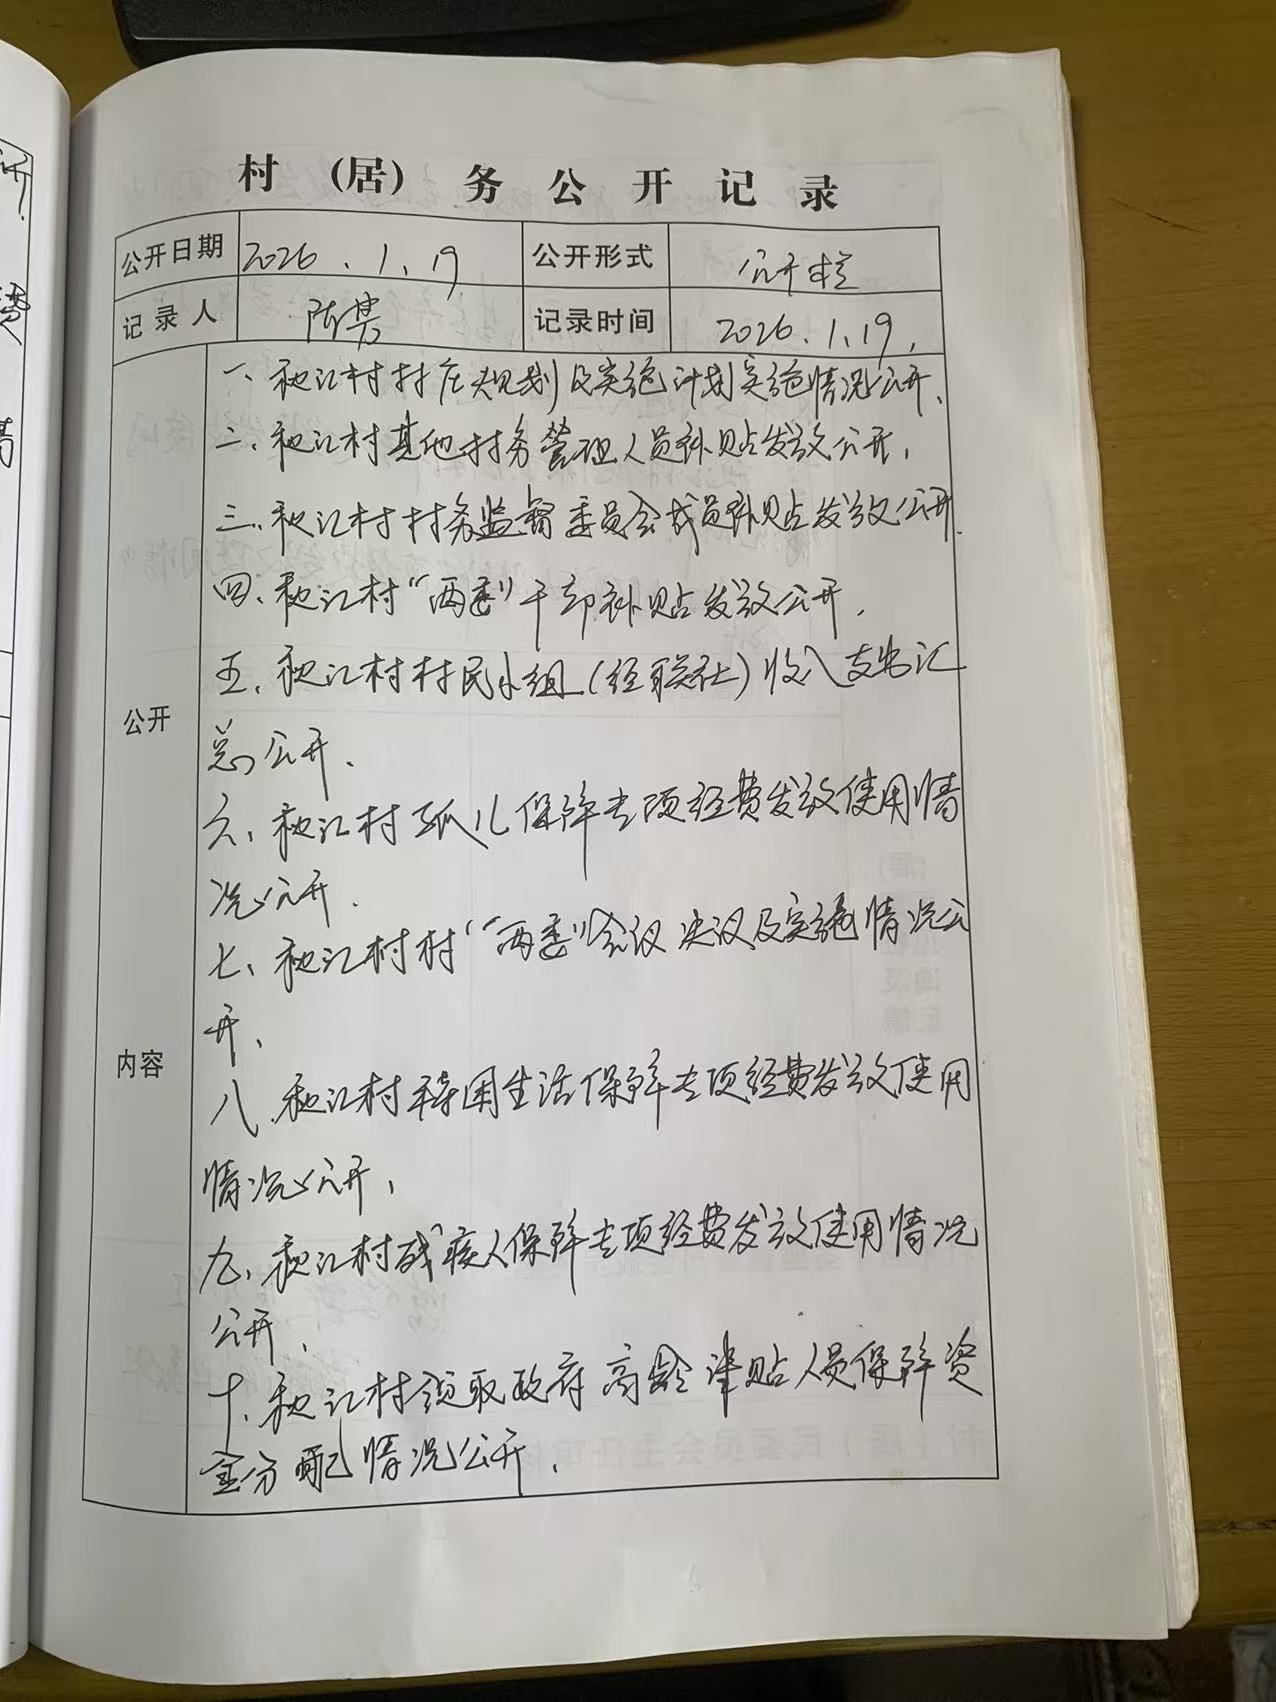 村（居）务公开记录
公开日期 2026.1.19 公开形式 公开栏
记录人 陈 记录时间 2026.1.19.
公开
内容
一、秋江村村庄规划及实施计划实施情况公开、
二、秋江村其他村务管理人员补贴发放公开，
三、秋江村村务监督委员会成员补贴发放公开.
四、秋江村“两委”干部补贴发放公开，
五、秋江村村民小组（经联社）收入支出汇
总公开、
六、秋江村孤儿保障专项经费发放使用情
况公开.
七、秋江村村“两委”会议决议及实施情况公
开、
八、秋江村特困生活保障专项经费发放使用
情况公开，
九、秋江村残疾人保障专项经费发放使用情况
公开，
十、秋江村领取政府高龄津贴人员保障资
金分配情况公开.